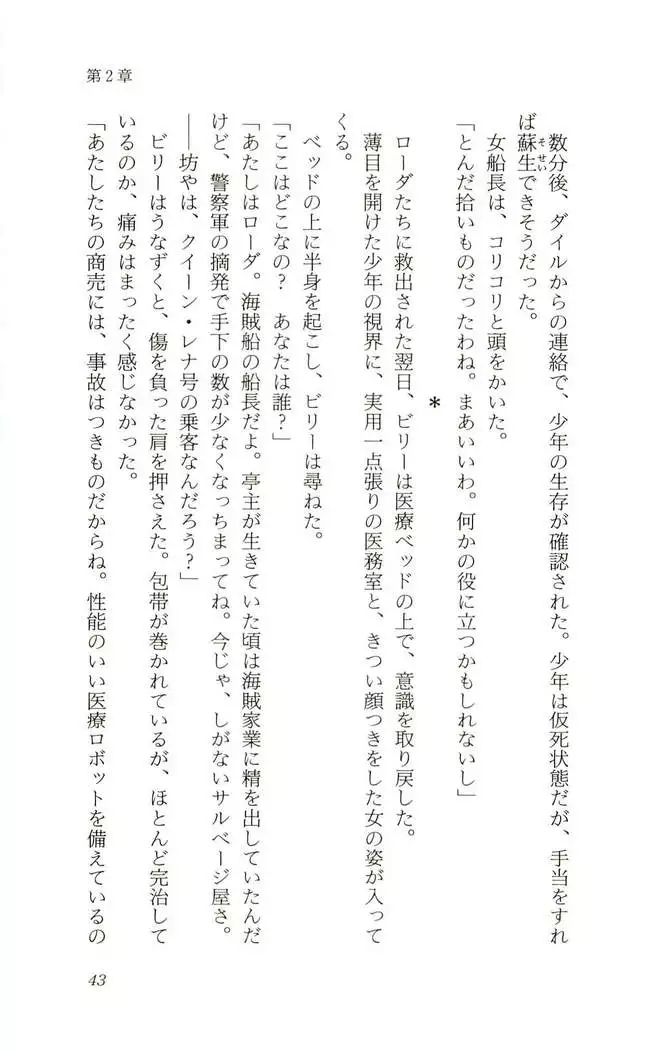 第2章
数分後、ダイルからの連絡で、少年の生存が確認された。少年は仮死状態だが、手当をすれ
ば蘇生できそうだった。
そせい
女船長は、コリコリと頭をかいた。
「とんだ拾いものだったわね。まあいいわ。何かの役に立つかもしれないし」
*
ローダたちに救出された翌日、ビリーは医療ベッドの上で、意識を取り戻した。
薄目を開けた少年の視界に、実用一点張りの医務室と、きつい顔つきをした女の姿が入って
くる。
ベッドの上に半身を起こし、ビリーは尋ねた。
「ここはどこなの? あなたは誰?」
「あたしはローダ。海賊船の船長だよ。亭主が生きていた頃は海賊家業に精を出していたんだ
けど、警察軍の摘発で手下の数が少なくなっちまってね。今じゃ、しがないサルベージ屋さ。
――坊やは、クイーン・レナ号の乗客なんだろう?」
ビリーはうなずくと、傷を負った肩を押さえた。包帯が巻かれているが、ほとんど完治して
いるのか、痛みはまったく感じなかった。
「あたしたちの商売には、事故はつきものだからね。性能のいい医療ロボットを備えているの
43